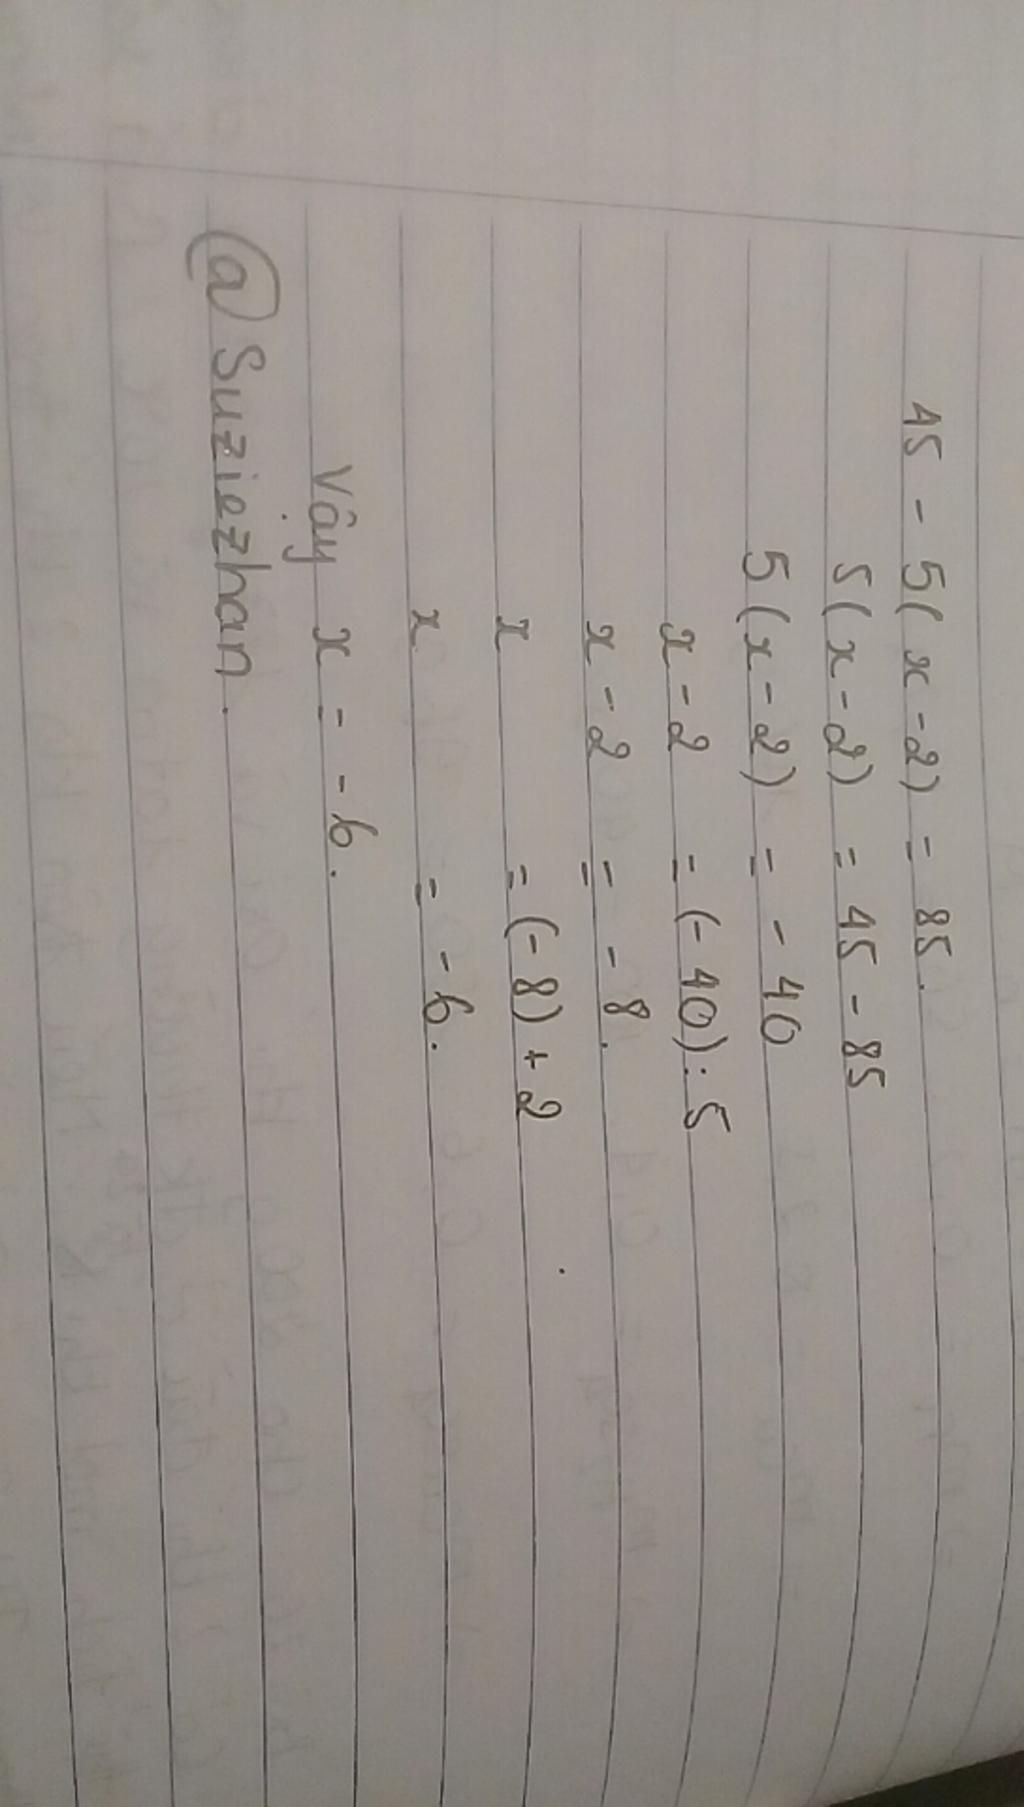 45 - 5(x-2) = 85.
5(x-2) = 45 - 85
5(x-2) = - 40
x-2 = (-40):5
x-2 = -8.
x = (-8)+2
x = -6.
Vậy x = -6.
@Suziezhan.